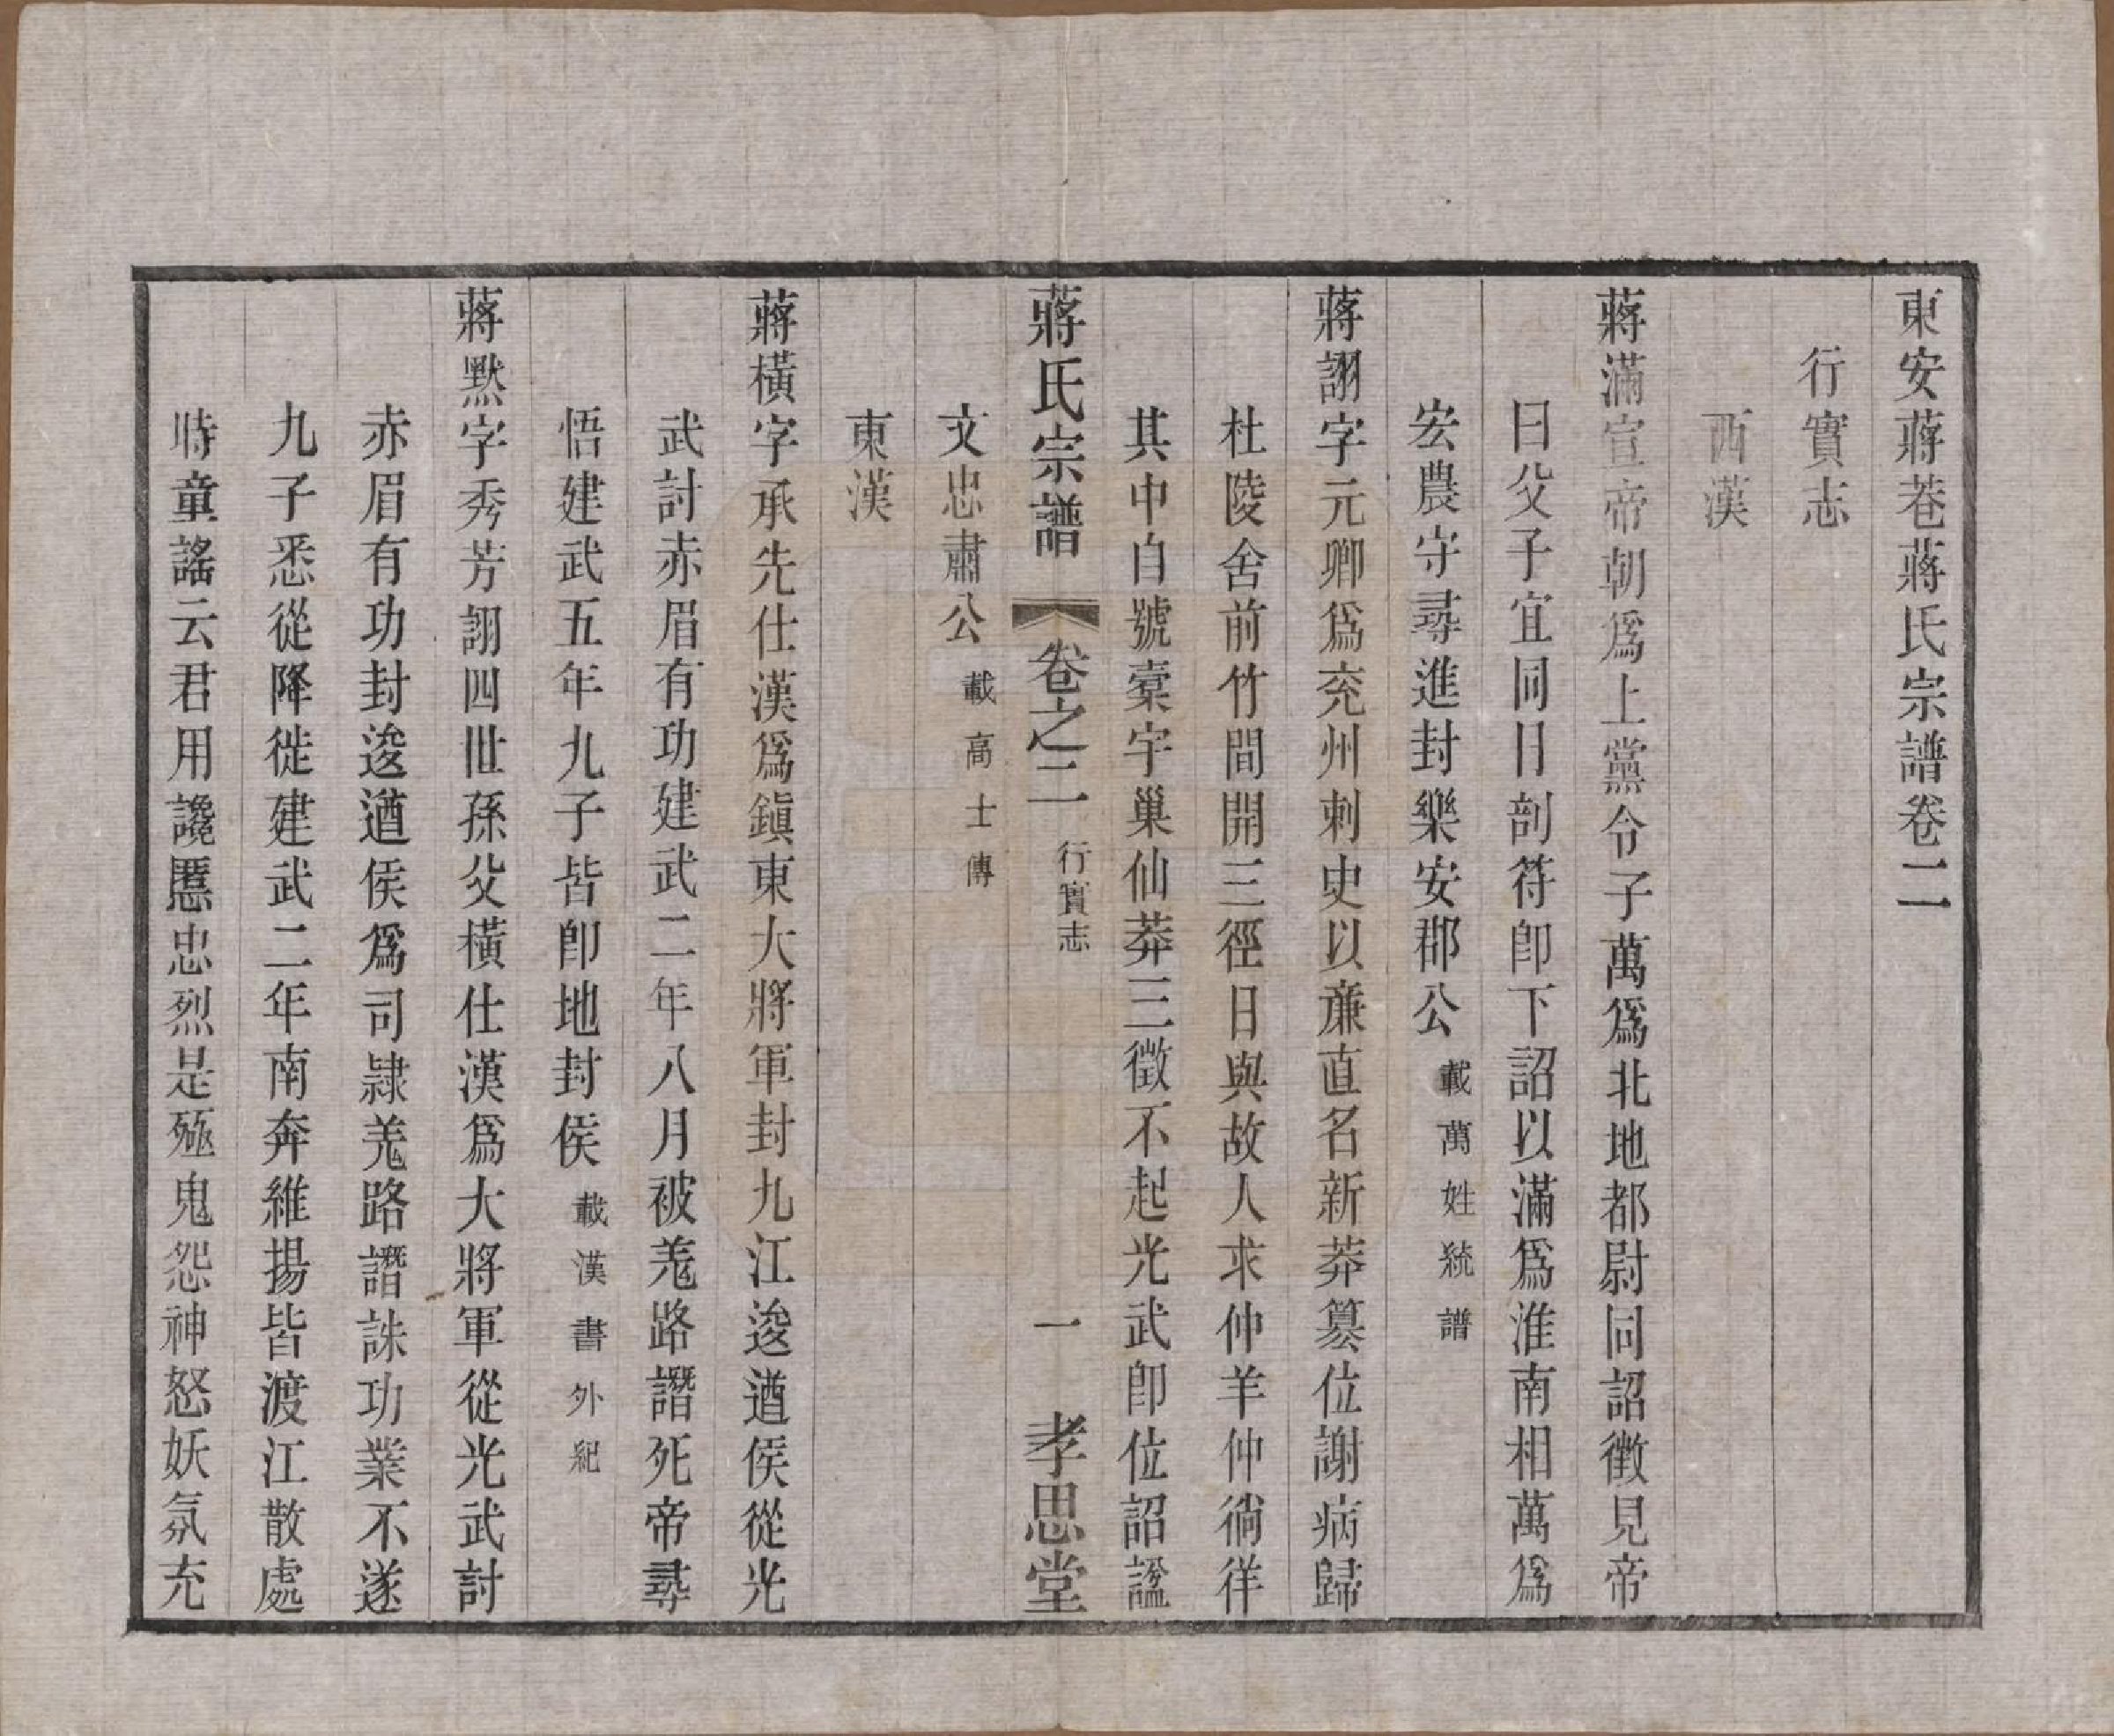 東安蔣巷蔣氏宗譜卷二
行實志
西漢
蔣滿宣帝朝爲上黨令子萬爲北地都尉同詔徵見帝
曰父子宜同日剖符卽下詔以滿爲淮南相萬爲
宏農守尋進封樂安郡公載萬姓統譜
蔣詡字元卿爲兖州刺史以亷直名新莽簒位謝病歸
杜陵舍前竹間開三徑日與故人求仲羊仲徜徉
其中自號槖宇巢仙莽三徵不起光武卽位詔諡
蔣氏宗譜 卷之二 行實志 一 孝思堂
文忠肅公載高士傳
東漢
蔣橫字承先仕漢爲鎭東大將軍封九江逡遒侯從光
武討赤眉有功建武二年八月被羗路譖死帝尋
悟建武五年九子皆卽地封侯載漢書外紀
蔣默字秀芳詡四世孫父橫仕漢爲大將軍從光武討
赤眉有功封逡遒侯爲司隷羗路譖誅功業不遂
九子悉從降徙建武二年南奔維揚皆渡江散處
時童謠云君用讒慝忠烈是殛鬼怨神怒妖氛充